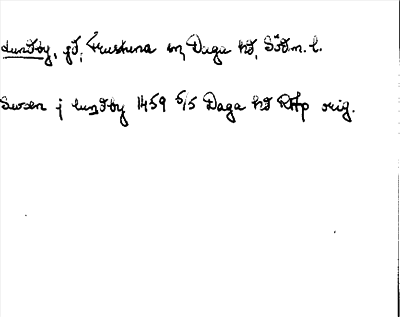 Lundby, gd, Frustuna sn, Daga hd, Södm. l.
Swen j lundby 1459 5/5 Daga hd RAp orig.